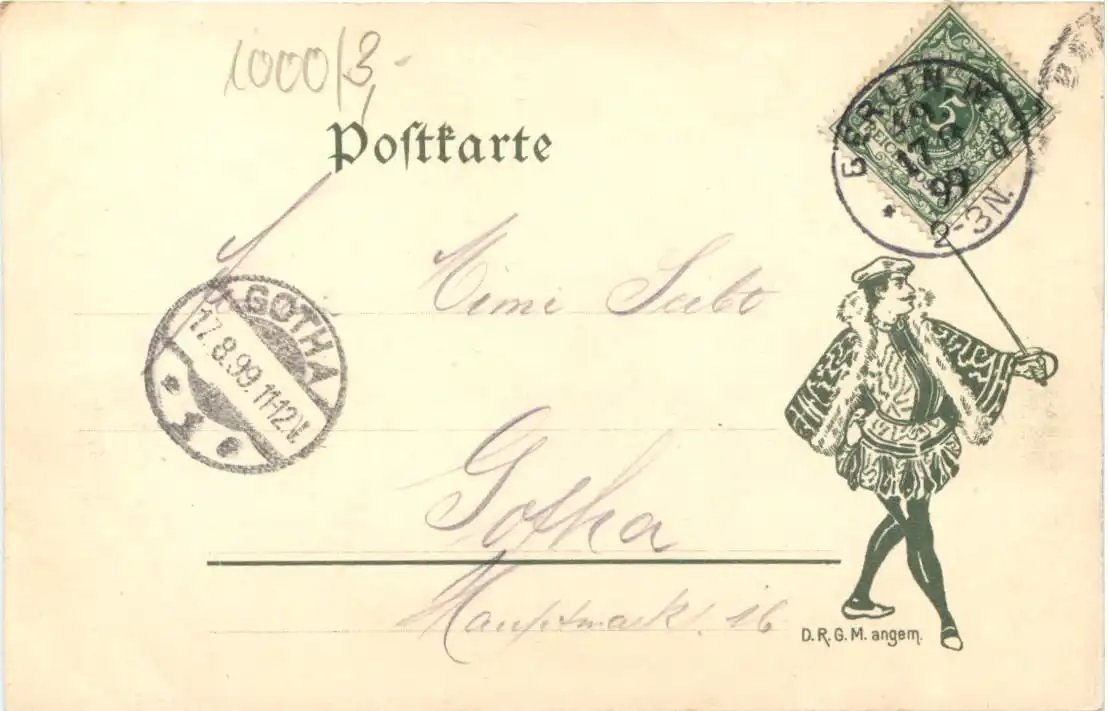 1000/3.-
Poſtkarte
BERLIN W.
17 8
99
2-3N.
5
REICHSPOST
Mimi
GOTHA
17.8.99.11-12V.
1
Gotha
Hauptmarkt 16
D.R.G.M. angem.